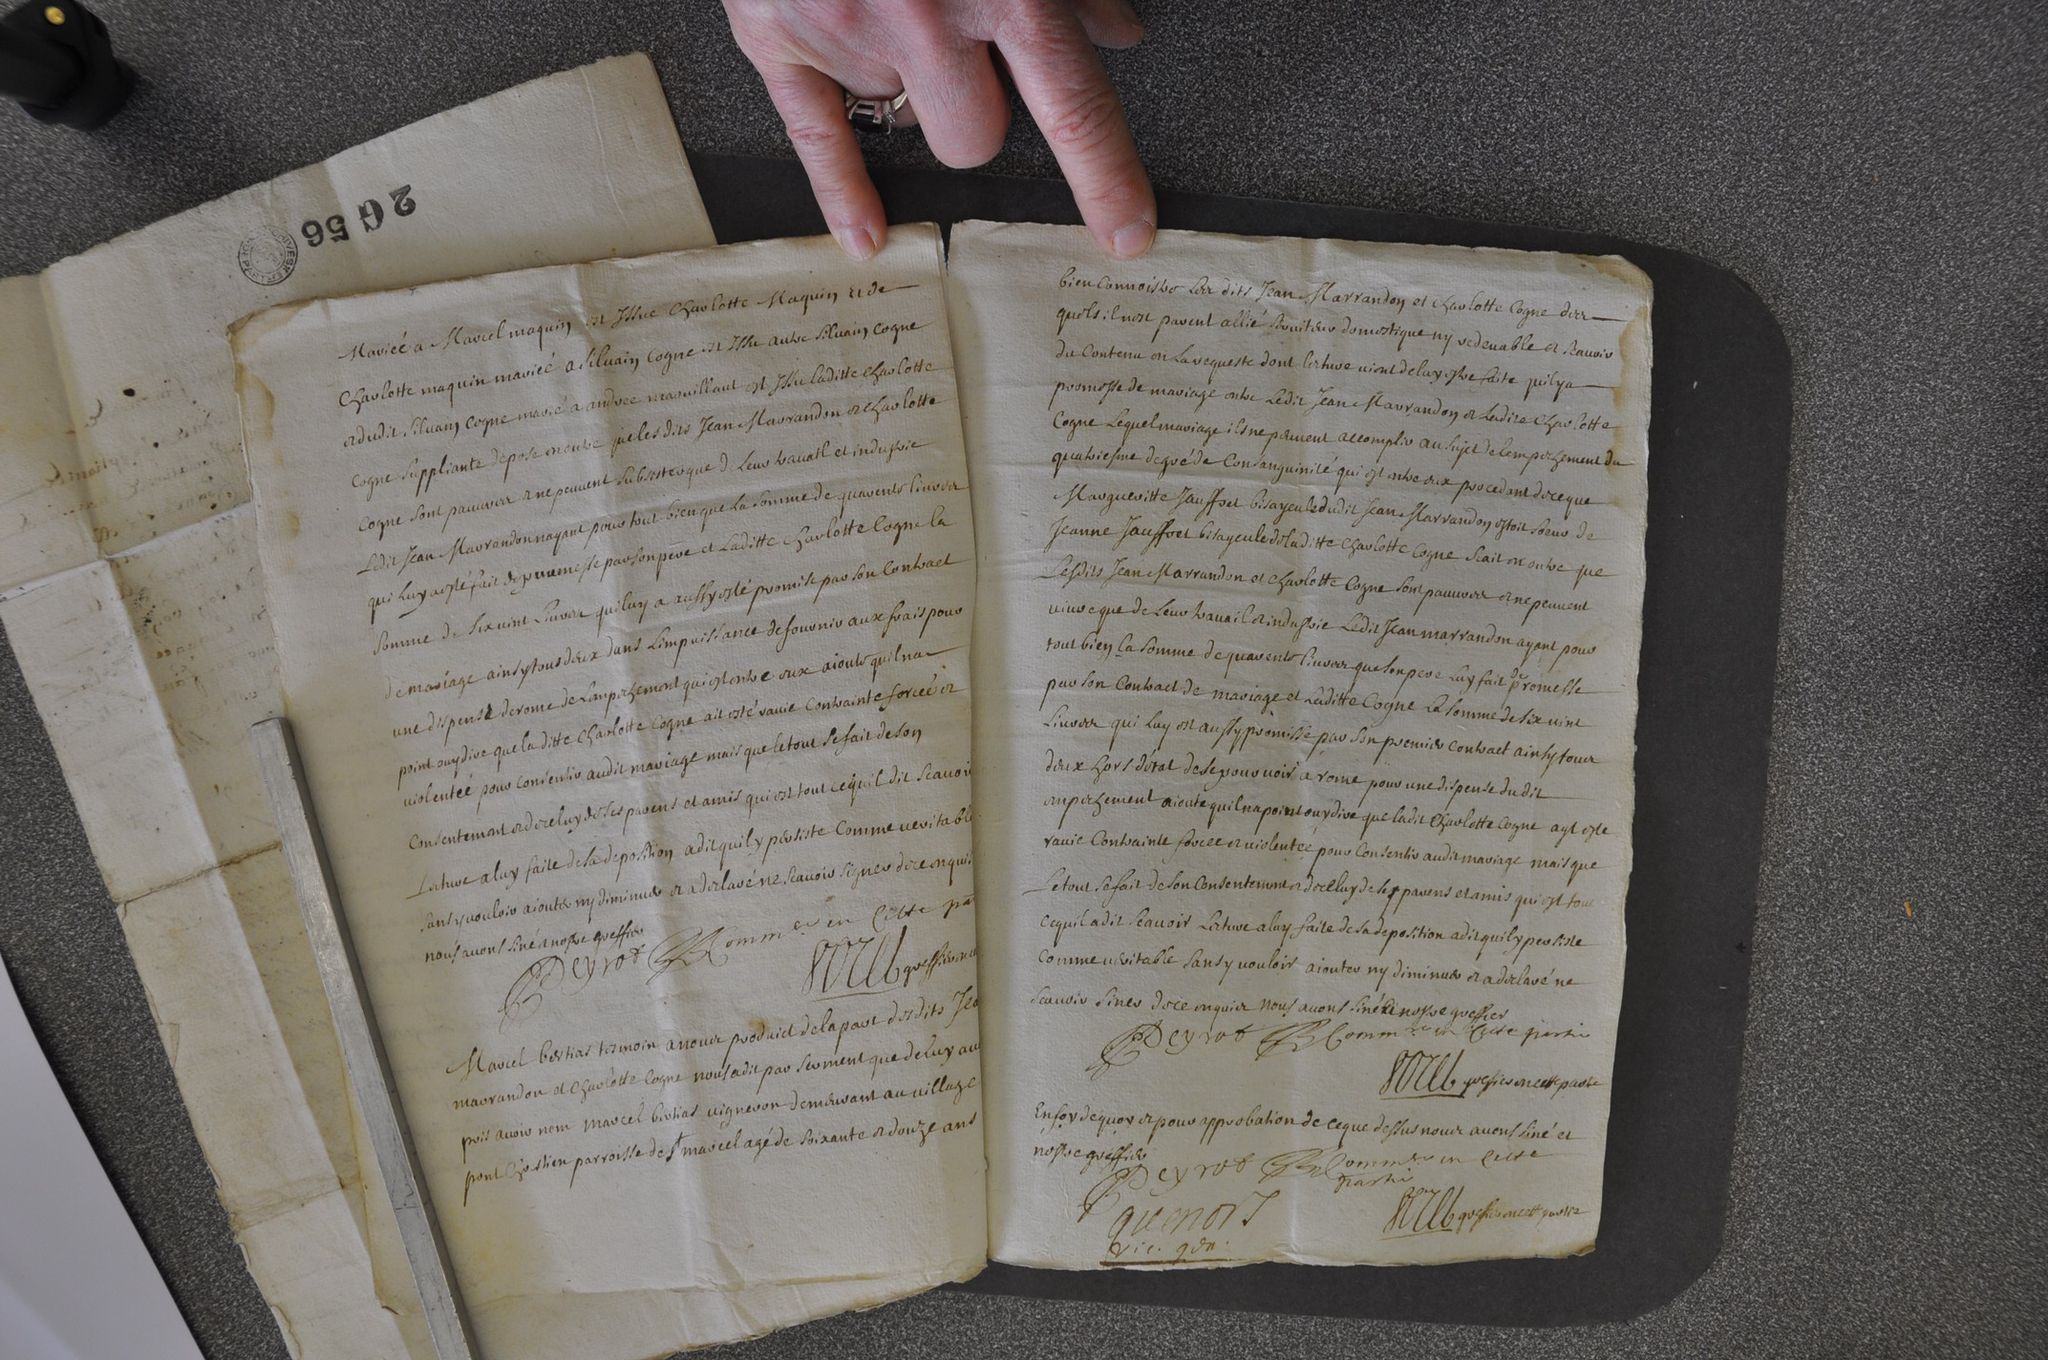 2 G 56
Mariéé a Marcel maquin est Issue Charlotte Maquin et de
Charlotte maquin mariéé a Siluain Cogne est Issu autre Siluain Cogne
et dudit Siluain Cogne marié a andrée massillaut est Issu laditte Charlotte
Cogne Suppliante depose en outre que lesdits Jean Marrandon et Charlotte
Cogne Sont pauures et ne peuuent Subsister que de Leur trauail et industrie
Ledit Jean Marrandon nayant pour tout bien que La Somme de quarente liures
qui luy a esté fait de promesse par son pere et Laditte Charlotte Cogne la
Somme de Six uint Liures qui luy a aussy esté promise par Son Contract
de mariage ainsy tous deux dans Limpuissance de fournir aux frais pour
une dispense de rome de Lempeschement qui est entre eux aioute quil na
point ouy dire que laditte Charlotte Cogne ait esté rauie Contrainte forcéé et
uiolentéé pour Consentir audit mariage mais que le tout Se fait de Son
Consentement et de celuy de ses parens et amis qui est tout ce quil dit Scauoir
Lecture a luy faite de Sa deposition a dit quil y persiste Comme ueritable
Sans y uouloir aiouter ny diminuer et a declaré ne Scauoir Signer de ce enquis
nous auons Siné et nostre greffier
Peyrot Commre en Cette par
greffier en ce
Marcel bertias tesmoin a nous produict de la part desdits Jea
marrandon et Charlotte Cogne nous a dit par Serment que de luy au
pris auoir nom Marcel bertias uigneron demeurant au uillage
pont Chrestien parroisse de St marcel agé de Soixante et douze ans
bien Connoistre Les dits Jean Marrandon et Charlotte Cogne des
quels il nest parent allié Seruiteur domestique ny redeuable et Scauoir
du Contenu en La requeste dont lecture uient de luy estre faite quil y a
promesse de mariage entre Ledit Jean Marrandon et Ladite Charlotte
Cogne Lequel mariage ils ne peuuent accomplir au Sujet de lempeschement du
quatriesme degré de Consanguinité qui est entre eux procedant de ce que
Margueritte Jauffret bisayeule dudit Jean Marrandon estoit Soeur de
Jeanne Jauffret bisayeule de laditte Charlotte Cogne Scait en outre que
Lesdits Jean Marrandon et Charlotte Cogne Sont pauures et ne peuuent
uiure que de Leur trauail et industrie Ledit Jean marrandon ayant pour
tout bien la Somme de quarente liures que Son pere Luy fait promesse
par Son Contract de mariage et Laditte Cogne La Somme de Six uint
Liures qui luy est aussy promisse par Son premier Contract ainsy tous
deux hors detat de Se pouruoir a rome pour une dispense dudit
empeschement aioute quil na point ouy dire que ladit Charlotte Cogne ayt este
rauie Contrainte forcee et uiolentéé pour Consentir audit mariage mais que
Le tout Se fait de Son Consentement et de celuy de Ses parens et amis qui est tout
ce quil a dit Scauoir Lecture a luy faite de Sa deposition a dit quil y persiste
Comme ueritable Sans y uouloir aiouter ny diminuer et a declaré ne
Scauoir Siner de ce enquis nous auons Siné et nostre greffier
Peyrot Commre en Cette partie
greffier en cette partie
En foy de quoy et pour approbation de ce que dessus nous auons Siné et
nostre greffier
Peyrot Commre en Cette
partie
greffier en cette partie
guenois
vic. gen.